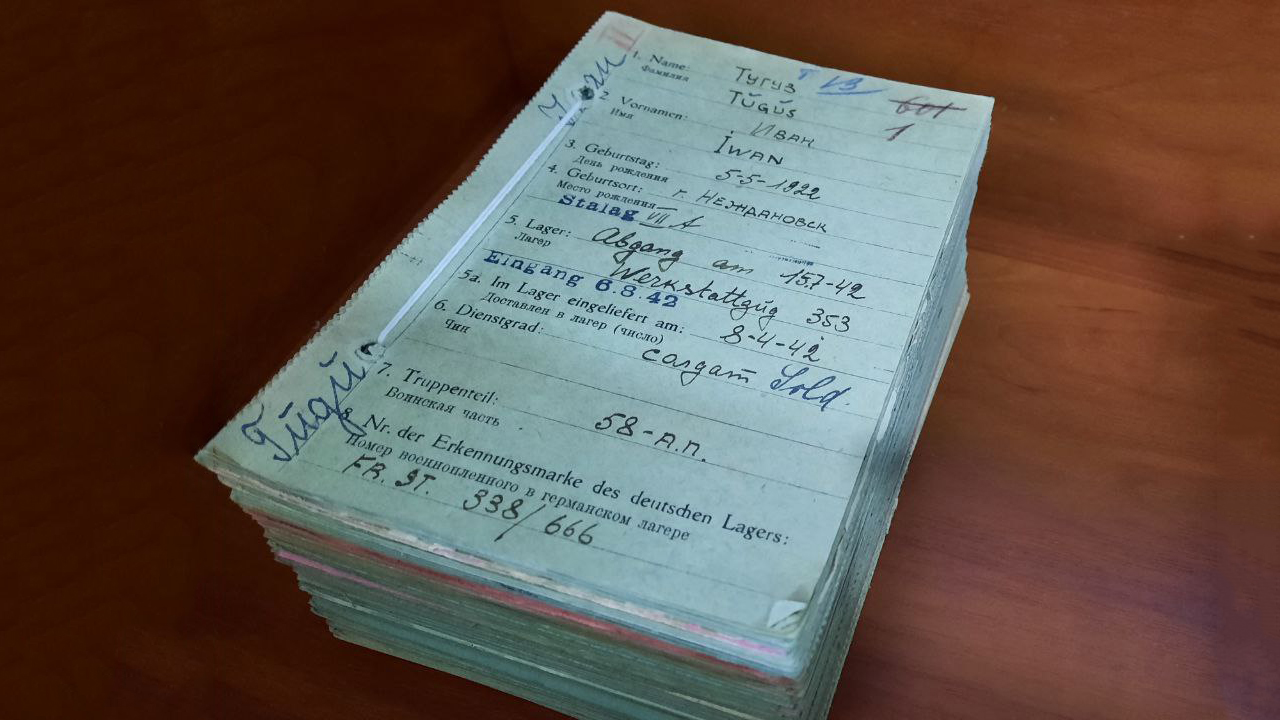 1. Name: Тугуз Т VB
Фамилия Tŭgŭs 1
2 Vornamen: Иван
Имя Iwan
3. Geburtstag: 5-5-1922
День рождения
4. Geburtsort: г. Нежdановск
Место рождения
Stalag VII A
5. Lager: Abgang am 15.7-42
Лагерь Werkstattzŭg 353
Eingang 6.8.42
5a. Im Lager eingeliefert am: 8-4-42
Доставлен в лагерь (число)
6. Dienstgrad: солдат Sold.
Чин
7. Truppenteil: 58-А.П.
Воинская часть
8. Nr. der Erkennungsmarke des deutschen Lagers:
Номер военнопленного в германском лагере
FR. ST. 338/666
Tŭgŭs